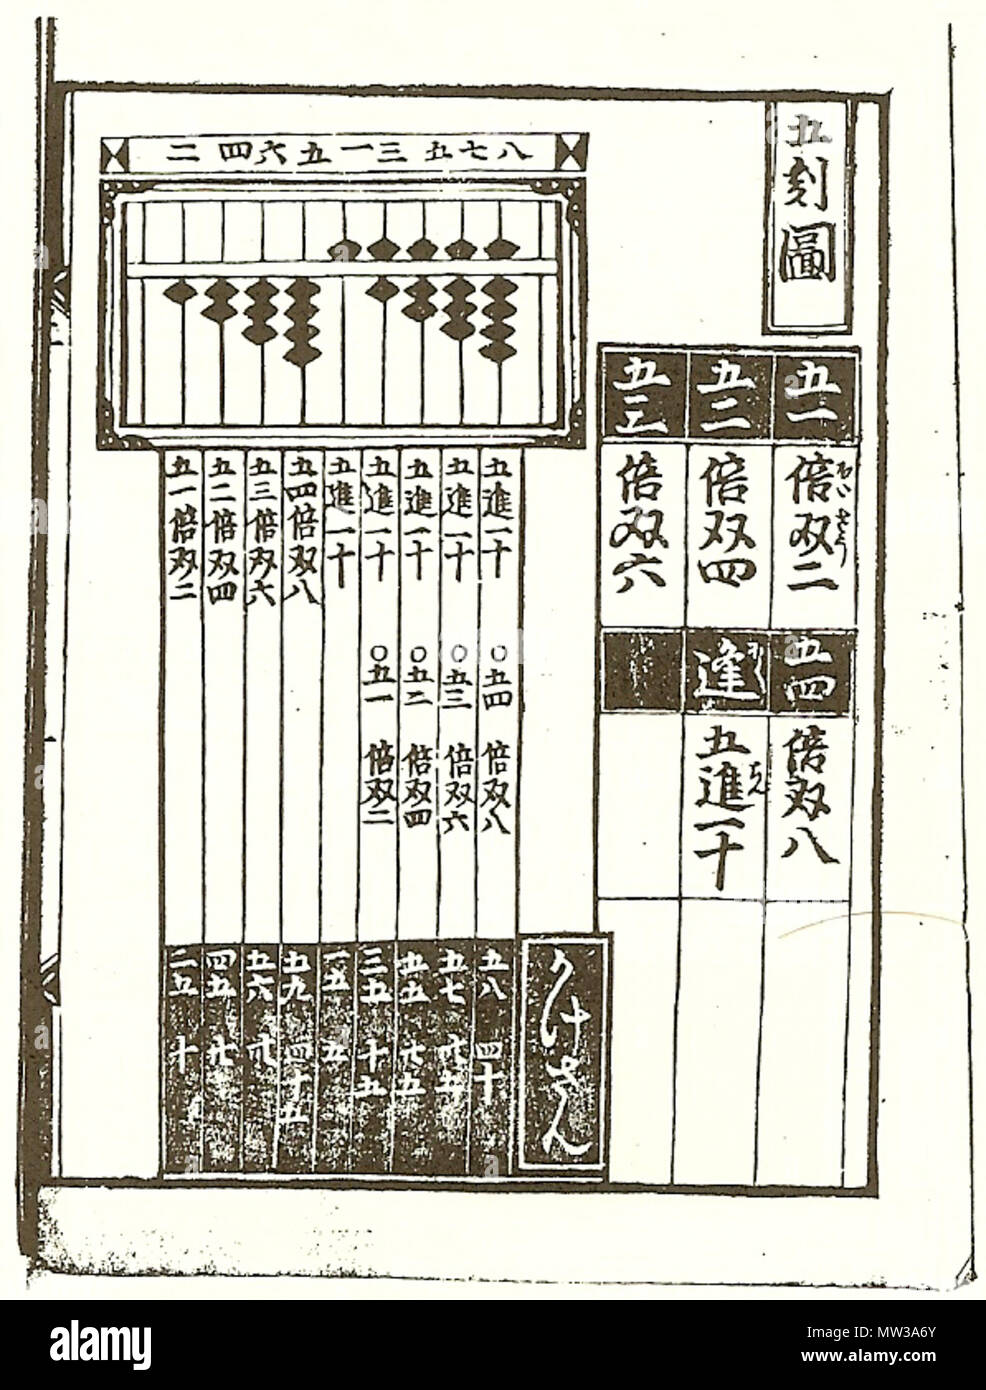 五刻圖
五一
倍双二
五二
倍双四
五三
倍双六
五四
倍双八
逢
五進一十
二四六五一三五七八
五進一十 〇五四 倍双八
五進一十 〇五三 倍双六
五進一十 〇五二 倍双四
五進一十 〇五一 倍双二
五進一十
五四倍双八
五三倍双六
五二倍双四
五一倍双二
かけさん
五八 四十
五七 五
五五 廿五
三五 十五
一五 五
五九 四十五
五六
四五 廿
二五 十
alamy
Image ID: MW3A6Y
www.alamy.com